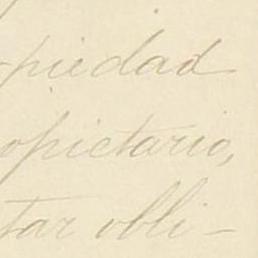 -piedad
opietario,
tar obli-